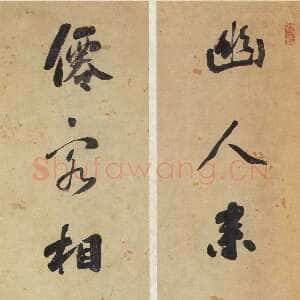 幽人
僊客相
Shufawang.CN